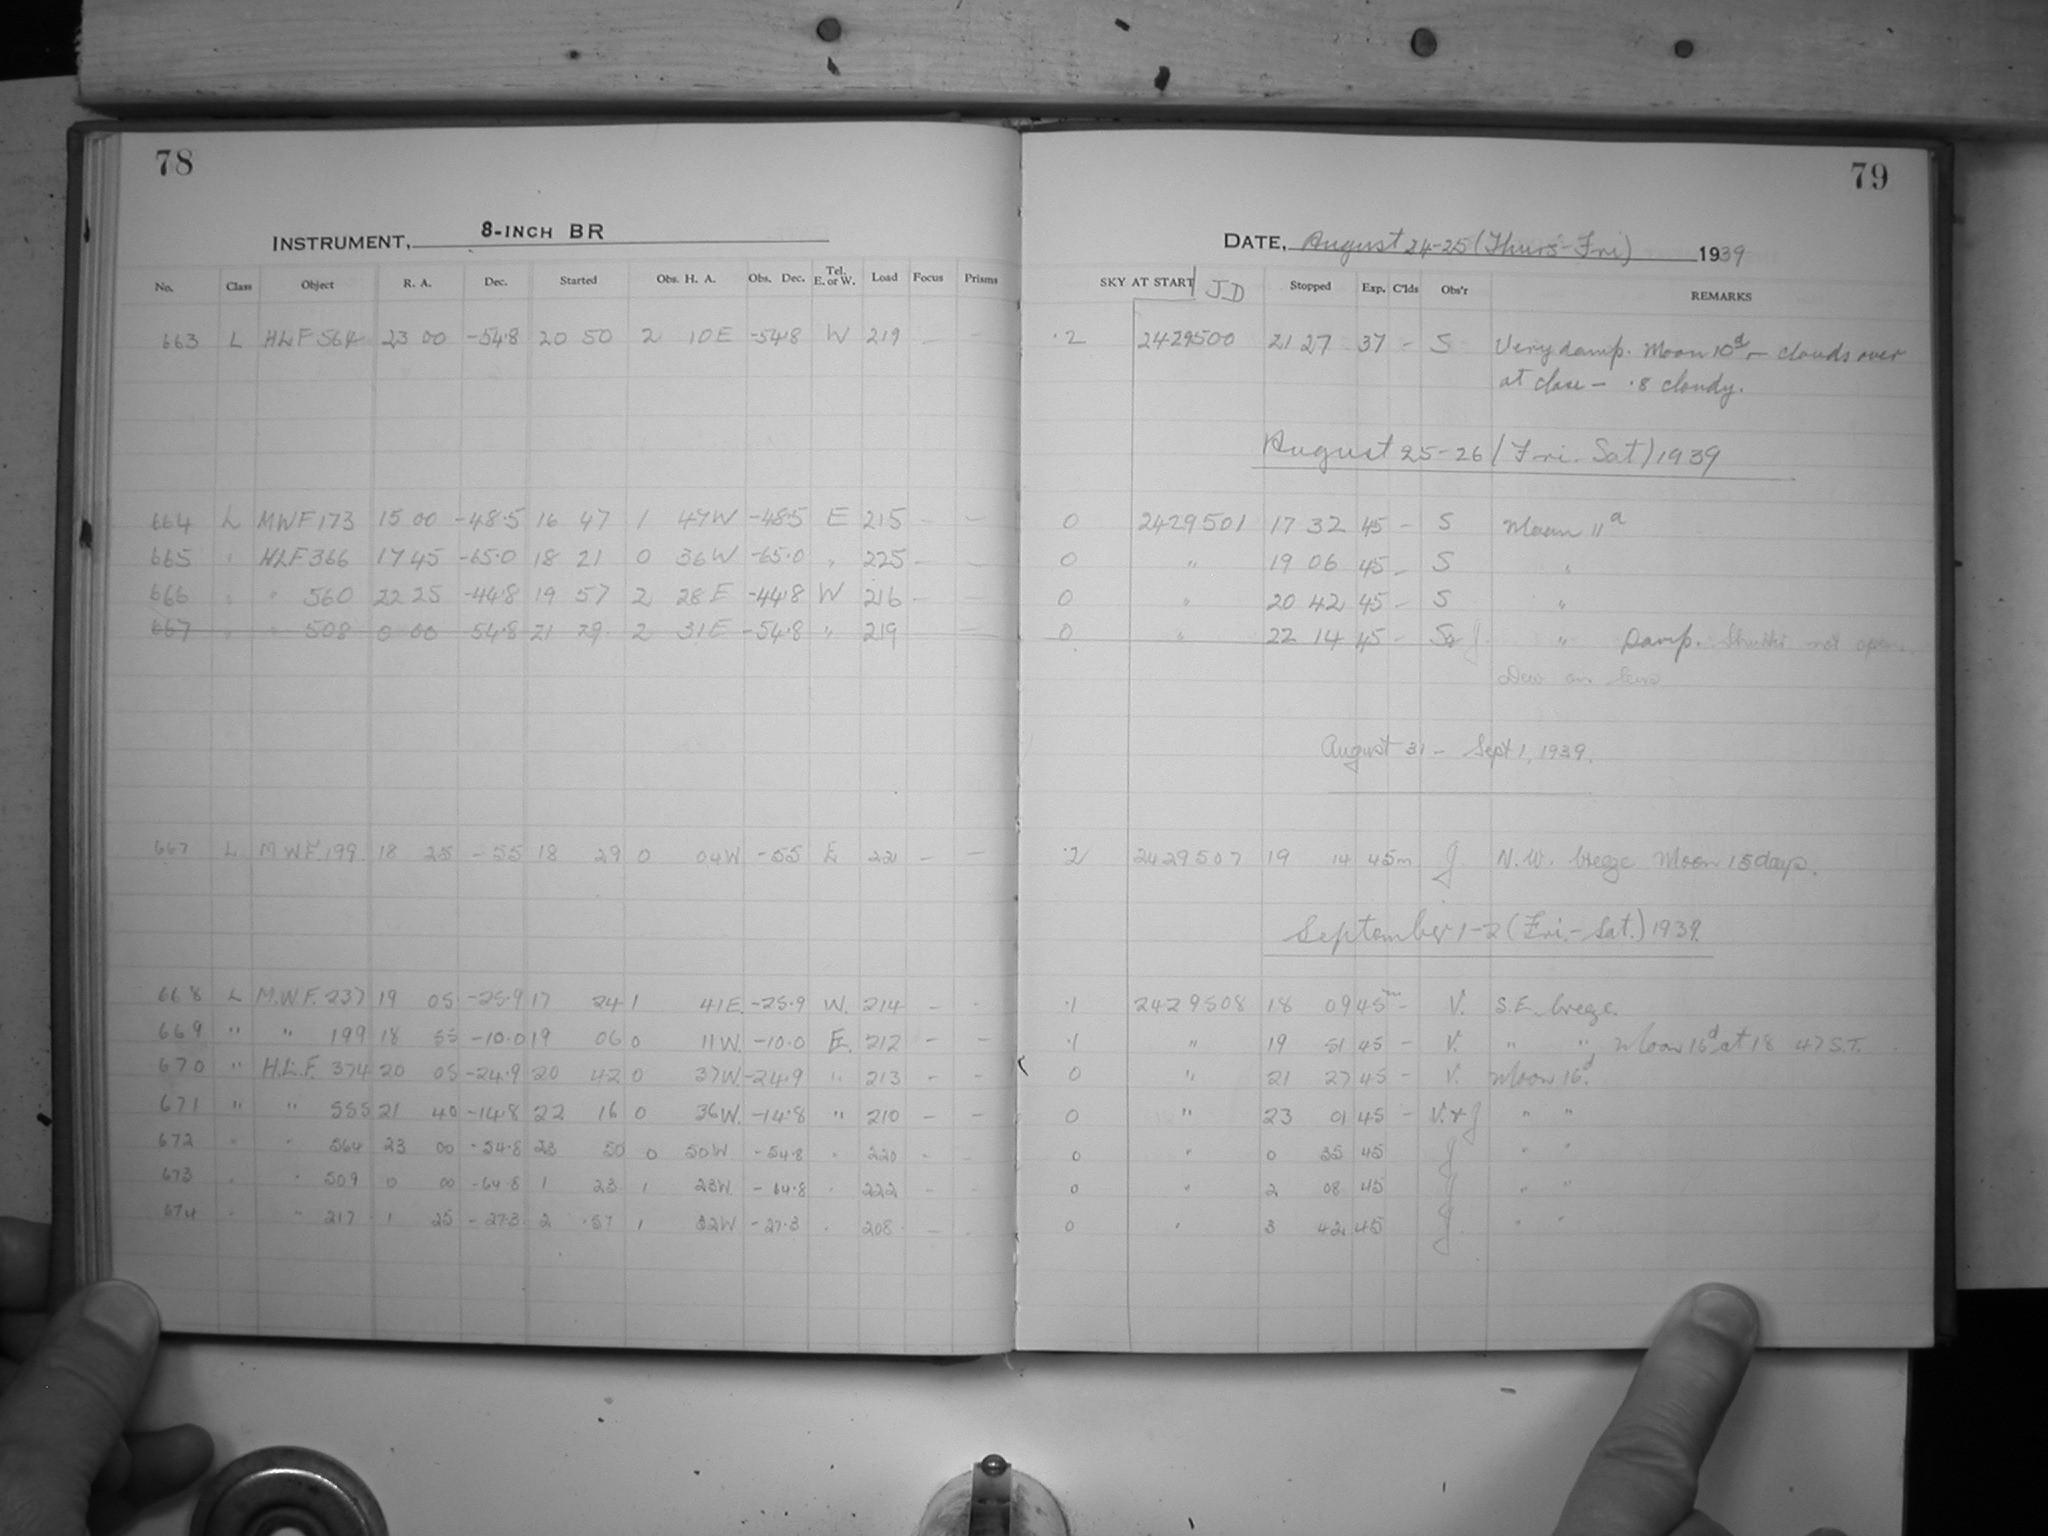 78
INSTRUMENT, 8-INCH BR
No. Class Object R. A. Dec. Started Obs. H. A. Obs. Dec. Tel. E. or W. Load Focus Prisms
663 L HLF 564 23 00 -54.8 20 50 2 10E -54.8 W 219 - -
664 L MWF 173 15 00 -48.5 16 47 1 47W -48.5 E 215 - -
665 " HLF 366 17 45 -65.0 18 21 0 36W -65.0 " 225 - -
666 " " 560 22 25 -44.8 19 57 2 28E -44.8 W 216 - -
667 " " 508 0 00 54.8 21 29 2 31E -54.8 " 219
667 L MWF. 199 18 25 -55 18 29 0 04W -55 E 221 - -
668 L M.W.F. 237 19 05 -25.9 17 24 1 41E. -25.9 W. 214 - -
669 " " 199 18 55 -10.0 19 06 0 11W. -10.0 E. 212 - -
670 " H.L.F. 374 20 05 -24.9 20 42 0 37W. -24.9 " 213 - -
671 " " 555 21 40 -14.8 22 16 0 36W. -14.8 " 210 - -
672 " " 564 23 00 -54.8 23 50 0 50W -54.8 " 220 - -
673 " " 509 0 00 -64.8 1 23 1 23W. -64.8 " 222 - -
674 " " 217 1 25 -27.3 2 57 1 32W -27.3 " 208 - -
79
DATE, August 24-25 (Thurs-Fri) 1939
SKY AT START JD Stopped Exp. C'lds Obs'r REMARKS
.2 2429500 21 27 37 - S Very damp. Moon 10d - clouds over
at close - .8 cloudy.
August 25-26 (Fri-Sat) 1939
0 2429501 17 32 45 - S Moon 11d
0 " 19 06 45 - S "
0 " 20 42 45 - S "
0 " 22 14 45 - " Damp. Shutter not open.
Dew on lens
August 31 - Sept 1, 1939.
.2 2429507 19 14 45m J N.W. breeze Moon 15 days.
September 1-2 (Fri.-Sat.) 1939.
.1 2429508 18 09 45m - V. S.E. breeze.
.1 " 19 51 45 - V. " " , Moon 16d at 18 47 S.T.
0 " 21 27 45 - V. Moon 16d.
0 " 23 01 45 - V. & J " "
0 " 0 35 45 J " "
0 " 2 08 45 J " "
0 " 3 42 45 J " "